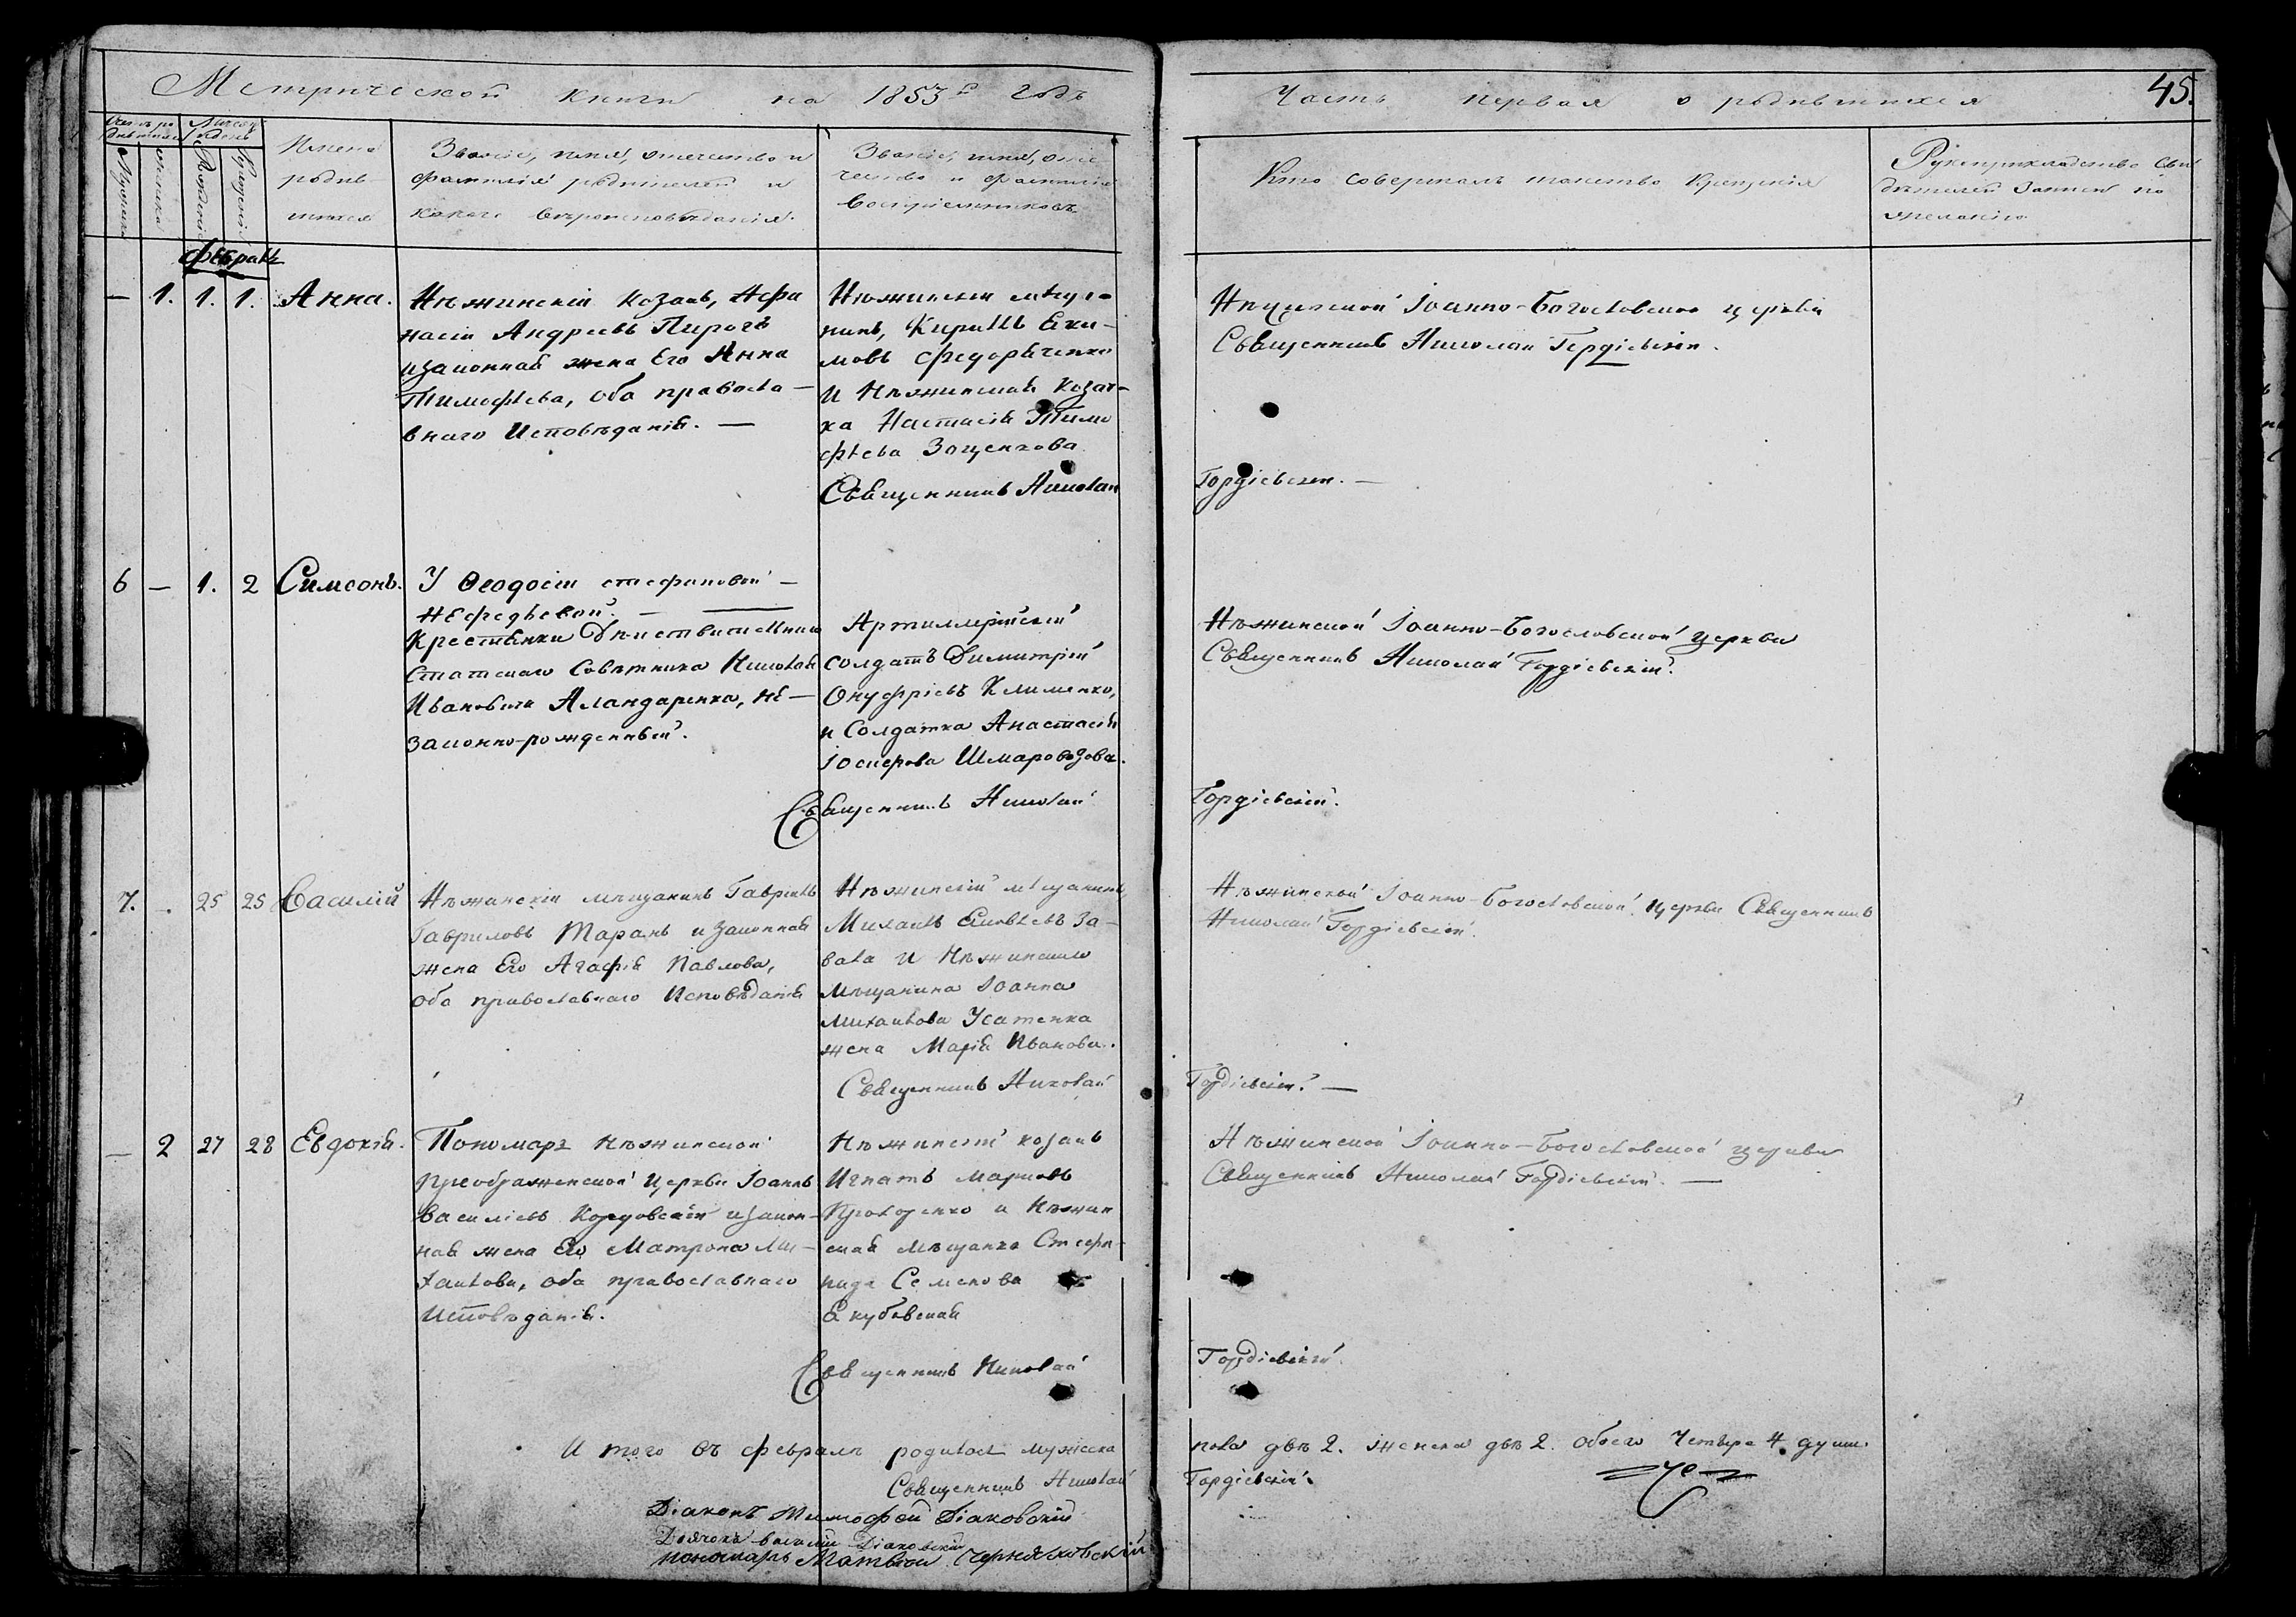 Метрической книги на 1853й годъ
Часть первая о родившихся
45.
Мужеска
женска
Рожденія
Крещенія
Имена
родив-
шихся
Званіе, имя, отчество и
фамилія родителей и
какого вѣроисповѣданія.
Званіе, имя, оте
чество и фамилія
воспріемниковъ
Кто совершалъ таинство крещенія
Рукоприкладство сви
дѣтелей записи по
желанію
февраль
— 1. 1. 1. Анна.
Нѣжинскій козакъ, Афа
насій Андреевъ Пирогъ
и законная жена его Анна
Тимофѣева, оба правосла—
внаго исповѣданія. —
Нѣжинскій мѣща-
нинъ, Кириллъ Еки-
мовъ Федорченко
и Нѣжинская козач-
ка Настасія Тимо
фѣева Зощенкова
Священникъ Николай
Нѣжинской Іоанно-Богословской церкви
Священникъ Николай Гордіевскій.
Гордіевскій. —
6 — 1. 2 Симеонъ.
У Ѳеодосіи стефановой —
Нефедьевой. —
Крестьянки Дѣйствительнаго
Статскаго Совѣтника Николая
Ивановича Аландаренка, не—
законно-рожденный.
Артиллерійскій
солдатъ Димитрій
Онуфріевъ Клименко,
и Солдатка Анастасія
Іосифова Шмаровозова.
Священникъ Николай
Нѣжинской Іоанно-Богословской церкви
Священникъ Николай Гордіевскій.
Гордіевскій.
7. — 25 25 Василій
Нѣжинскій мѣщанинъ Гавріилъ
Гавриловъ Таранъ и законная
жена его Агафія Павлова,
оба православнаго исповѣданія
Нѣжинскій мѣщанинъ,
Михаилъ Яковлевъ За-
вала и Нѣжинскаго
мѣщанина Іоанна
Михайлова Усатенка
жена Марія Иванова.
Священникъ Николай
Нѣжинской Іоанно-Богословской церкви Священникъ
Николай Гордіевскій.
Гордіевскій. —
— 2 27 28 Евдокія.
Пономарь Нѣжинской
Преображенской церкви Іоаннъ
Василіевъ и закон-
ная жена его Матрона Ми-
хайлова, оба православнаго
исповѣданія.
Нѣжинскій козакъ
Игнатъ Марковъ
Прохоренко и Нѣжин
ская мѣщанка Стефа-
нида Семенова
Якубовская
Священникъ Николай
Нѣжинской Іоанно-Богословской церкви
Священникъ Николай Гордіевскій. —
Гордіевскій.
И того въ февралѣ родилось мужеска
пола два 2. женска двѣ 2. обоего четыре 4. душъ.
Священникъ Николай
Гордіевскій.
Діаконъ Тимофей Діаковскій
Дьячокъ Василій Діаковскій
пономарь Матвей Черняховскій